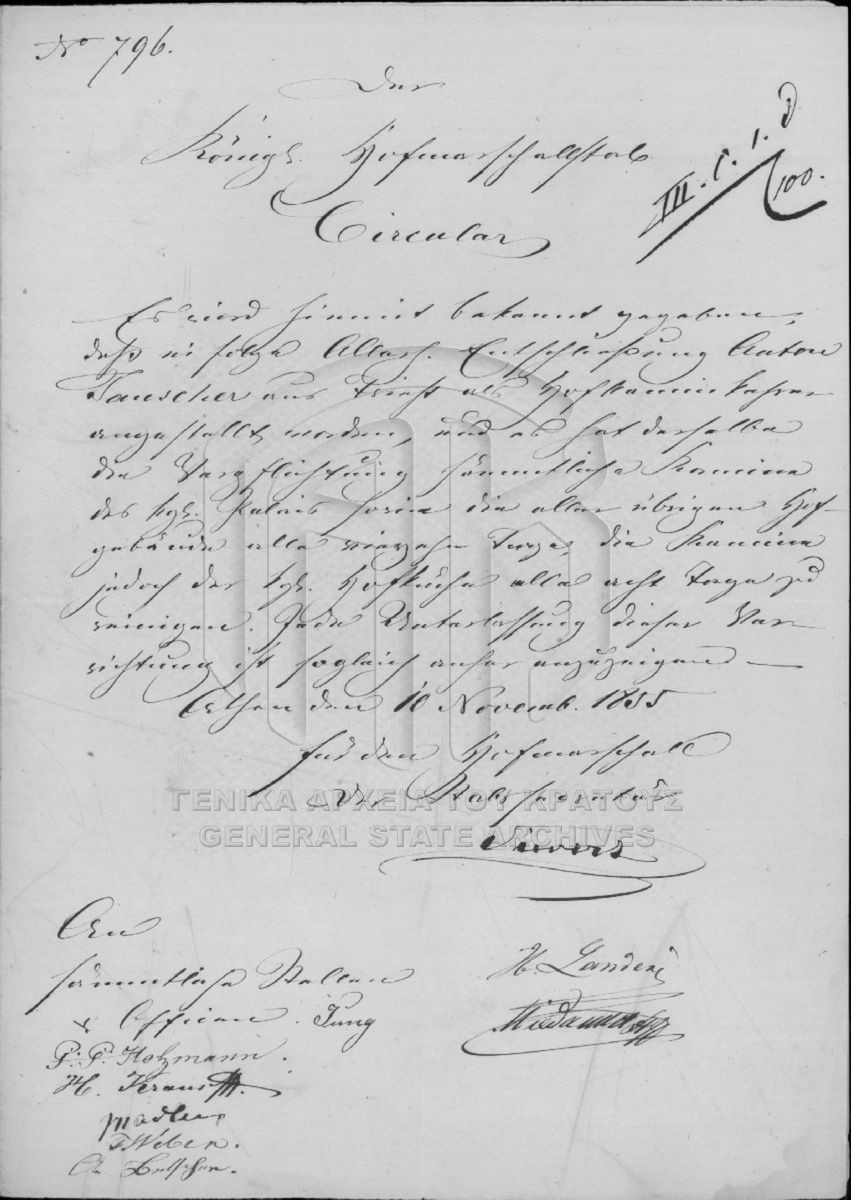 No 796.
Der
Königl. Hofmarschallstab
III. C. 1. d
100.
Circular
Es wird hiemit bekannt gegeben,
daß in folge Allerh. Entschließung Anton
Tauscher aus Triest als Hofkaminkehrer
angestellt worden, und es hat derselbe
die Verpflichtung sämmtliche Kamine
des kgl. Palais sowie die aller übrigen Hof-
gebäude alle vierzehn Tage, die Kamine
jedoch der kgl. Hofküche alle acht Tage zu
reinigen. Jede Unterlassung dieser Ver-
richtung ist sogleich anher anzuzeigen
Athen den 10 Novemb. 1855
für den Hofmarschall
Der Stabssecretär
ΓΕΝΙΚΑ ΑΡΧΕΙΑ ΤΟΥ ΚΡΑΤΟΥΣ
GENERAL STATE ARCHIVES
Sievert
An
sämmtliche Stellen
H. Landerer
Officien. Jung
P. P. Holzmann.
H. Kraus
Madler
Weber.